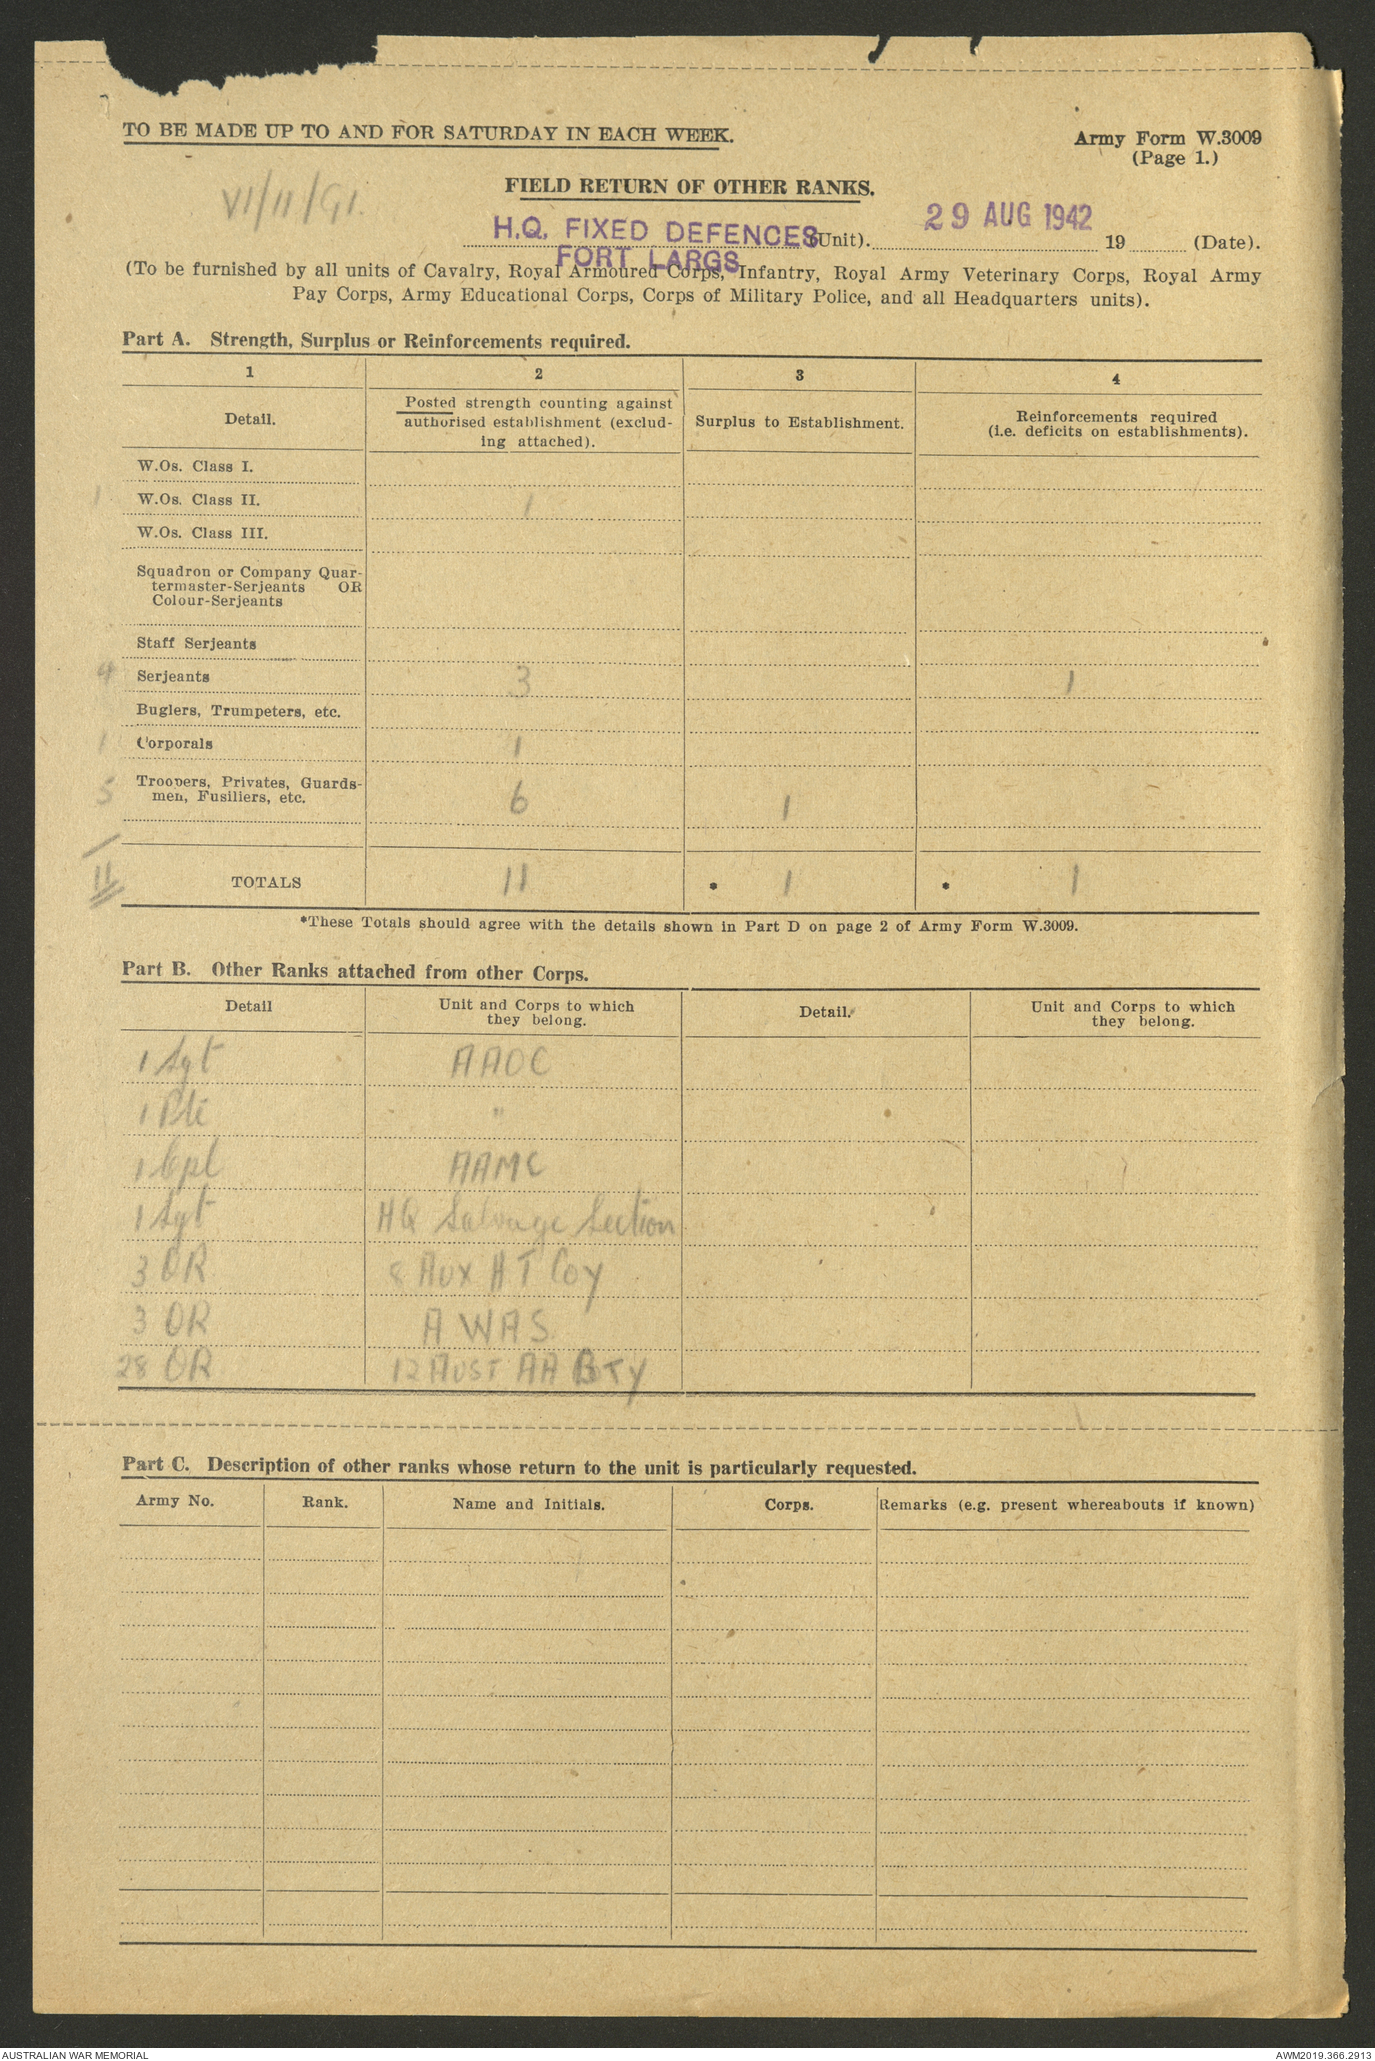 TO BE MADE UP TO AND FOR SATURDAY IN EACH WEEK.
Army Form W.3009
(Page 1.)
FIELD RETURN OF OTHER RANKS.
VI/11/91.
H.Q. FIXED DEFENCES (Unit). 29 AUG 1942 19 (Date).
FORT LARGS
(To be furnished by all units of Cavalry, Royal Armoured Corps, Infantry, Royal Army Veterinary Corps, Royal Army
Pay Corps, Army Educational Corps, Corps of Military Police, and all Headquarters units).
Part A. Strength, Surplus or Reinforcements required.
1 2 3 4
Detail.
Posted strength counting against
authorised establishment (exclud-
ing attached).
Surplus to Establishment.
Reinforcements required
(i.e. deficits on establishments).
W.Os. Class I.
1 W.Os. Class II. 1
W.Os. Class III.
Squadron or Company Quar-
termaster-Serjeants OR
Colour-Serjeants
Staff Serjeants
4 Serjeants 3 1
Buglers, Trumpeters, etc.
1 Corporals 1
5 Troopers, Privates, Guards-
men, Fusiliers, etc. 6 1
11 TOTALS 11 * 1 * 1
*These Totals should agree with the details shown in Part D on page 2 of Army Form W.3009.
Part B. Other Ranks attached from other Corps.
Detail
Unit and Corps to which
they belong.
Detail.
Unit and Corps to which
they belong.
1 Sgt AAOC
1 Pte "
1 Cpl AAMC
1 Sgt HQ Salvage Section
3 OR 8 Aux H T Coy
3 OR A WAS
28 OR 12 AUST AA BTY
Part C. Description of other ranks whose return to the unit is particularly requested.
Army No. Rank. Name and Initials. Corps. Remarks (e.g. present whereabouts if known)
AUSTRALIAN WAR MEMORIAL
AWM2019.366.2913